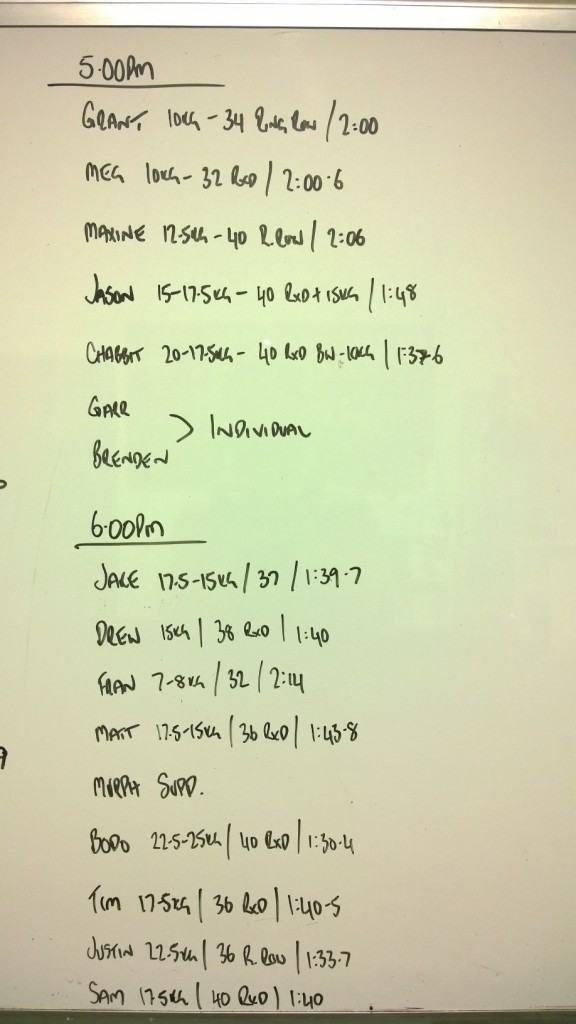 5.00PM
GRANT 10KG - 34 RING ROW / 2:00
MEG 10KG - 32 RXD / 2:00.6
MAXINE 12.5KG - 40 R.ROW / 2:06
JASON 15-17.5KG - 40 RXD + 15KG / 1:48
CHABBIT 20-17.5KG - 40 RXD BW-10KG / 1:37.6
GARR
BRENDEN > INDIVIDUAL
6.00PM
JAKE 17.5-15KG / 37 / 1:39.7
DREW 15KG | 38 RXD | 1:40
FRAN 7-8KG / 32 / 2:14
MATT 17.5-15KG | 36 RXD | 1:43.8
MURPH SUPP.
BODO 22.5-25KG | 40 RXD | 1:30.4
TIM 17.5KG | 36 RXD | 1:40.5
JUSTIN 22.5KG | 36 R.ROW | 1:33.7
SAM 17.5KG | 40 RXD | 1:40